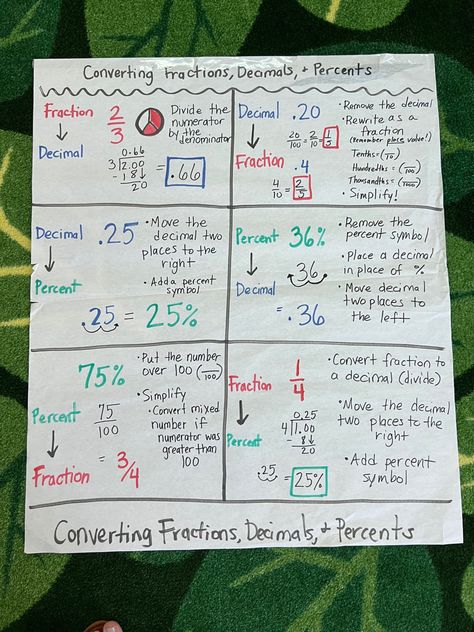 Converting Fractions, Decimals, + Percents
Fraction 2/3
↓
Decimal
Divide the
numerator
by the
denominator
0.66
3)2.00
- 18↓
20
= .66
Decimal .20
↓
Fraction
20/100 = 2/10 = 1/5
.4
4/10 = 2/5
• Remove the decimal
• Rewrite as a
fraction
(Remember place value!)
Tenths = (/10)
Hundredths = (/100)
Thousandths = (/1000)
• Simplify!
Decimal .25
↓
Percent
• Move the
decimal two
places to the
right
• Add a percent
symbol
.25 = 25%
Percent 36%
↓
Decimal
36.
= .36
• Remove the
percent symbol
• Place a decimal
in place of %
• Move decimal
two places to
the left
75%
Percent 75/100
↓
Fraction = 3/4
• Put the number
over 100 (/100)
• Simplify
• Convert mixed
number if
numerator was
greater than
100
Fraction 1/4
↓
Percent
0.25
4)1.00
- 8↓
20
.25 = 25%
• Convert fraction to
a decimal (divide)
• Move the decimal
two places to the
right
• Add percent
symbol
Converting Fractions, Decimals, + Percents